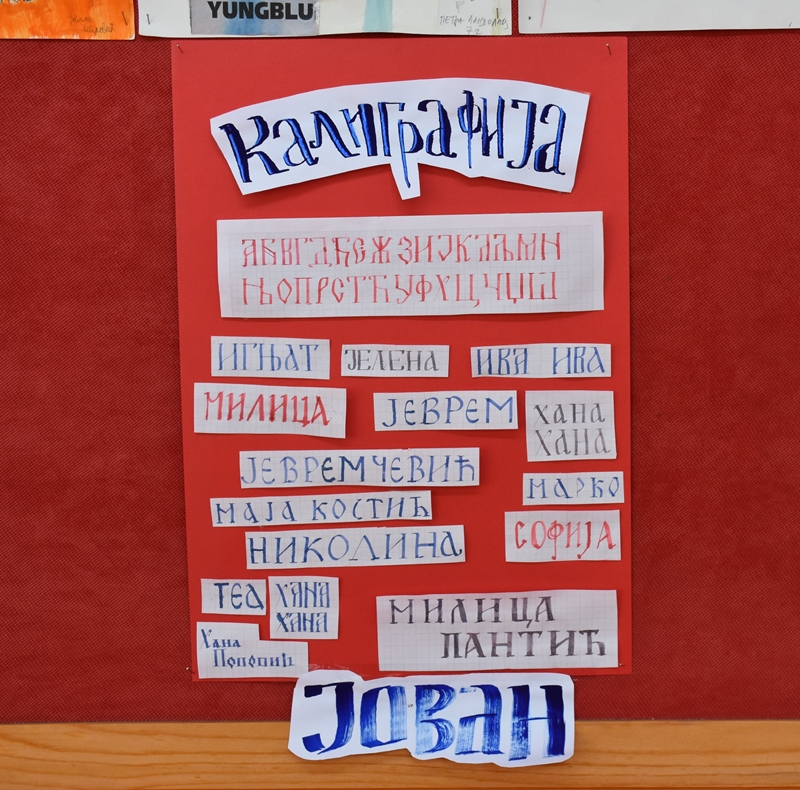 YUNGBLU
Калиграфија
АБВГДЂЕЖЗИЈКЛЉМН
ЊОПРСТЋУФХЦЧЏШ
ИГЊАТ
ЈЕЛЕНА
ИВА ИВА
МИЛИЦА
ЈЕВРЕМ
ХАНА
ХАНА
ЈЕВРЕМ ЧЕВИЋ
МАРКО
МАЈА КОСТИЋ
СОФИЈА
НИКОЛИНА
ТЕА
ХАНА
ХАНА
МИЛИЦА
ПАНТИЋ
Хана
Поповић
ЈОВАН